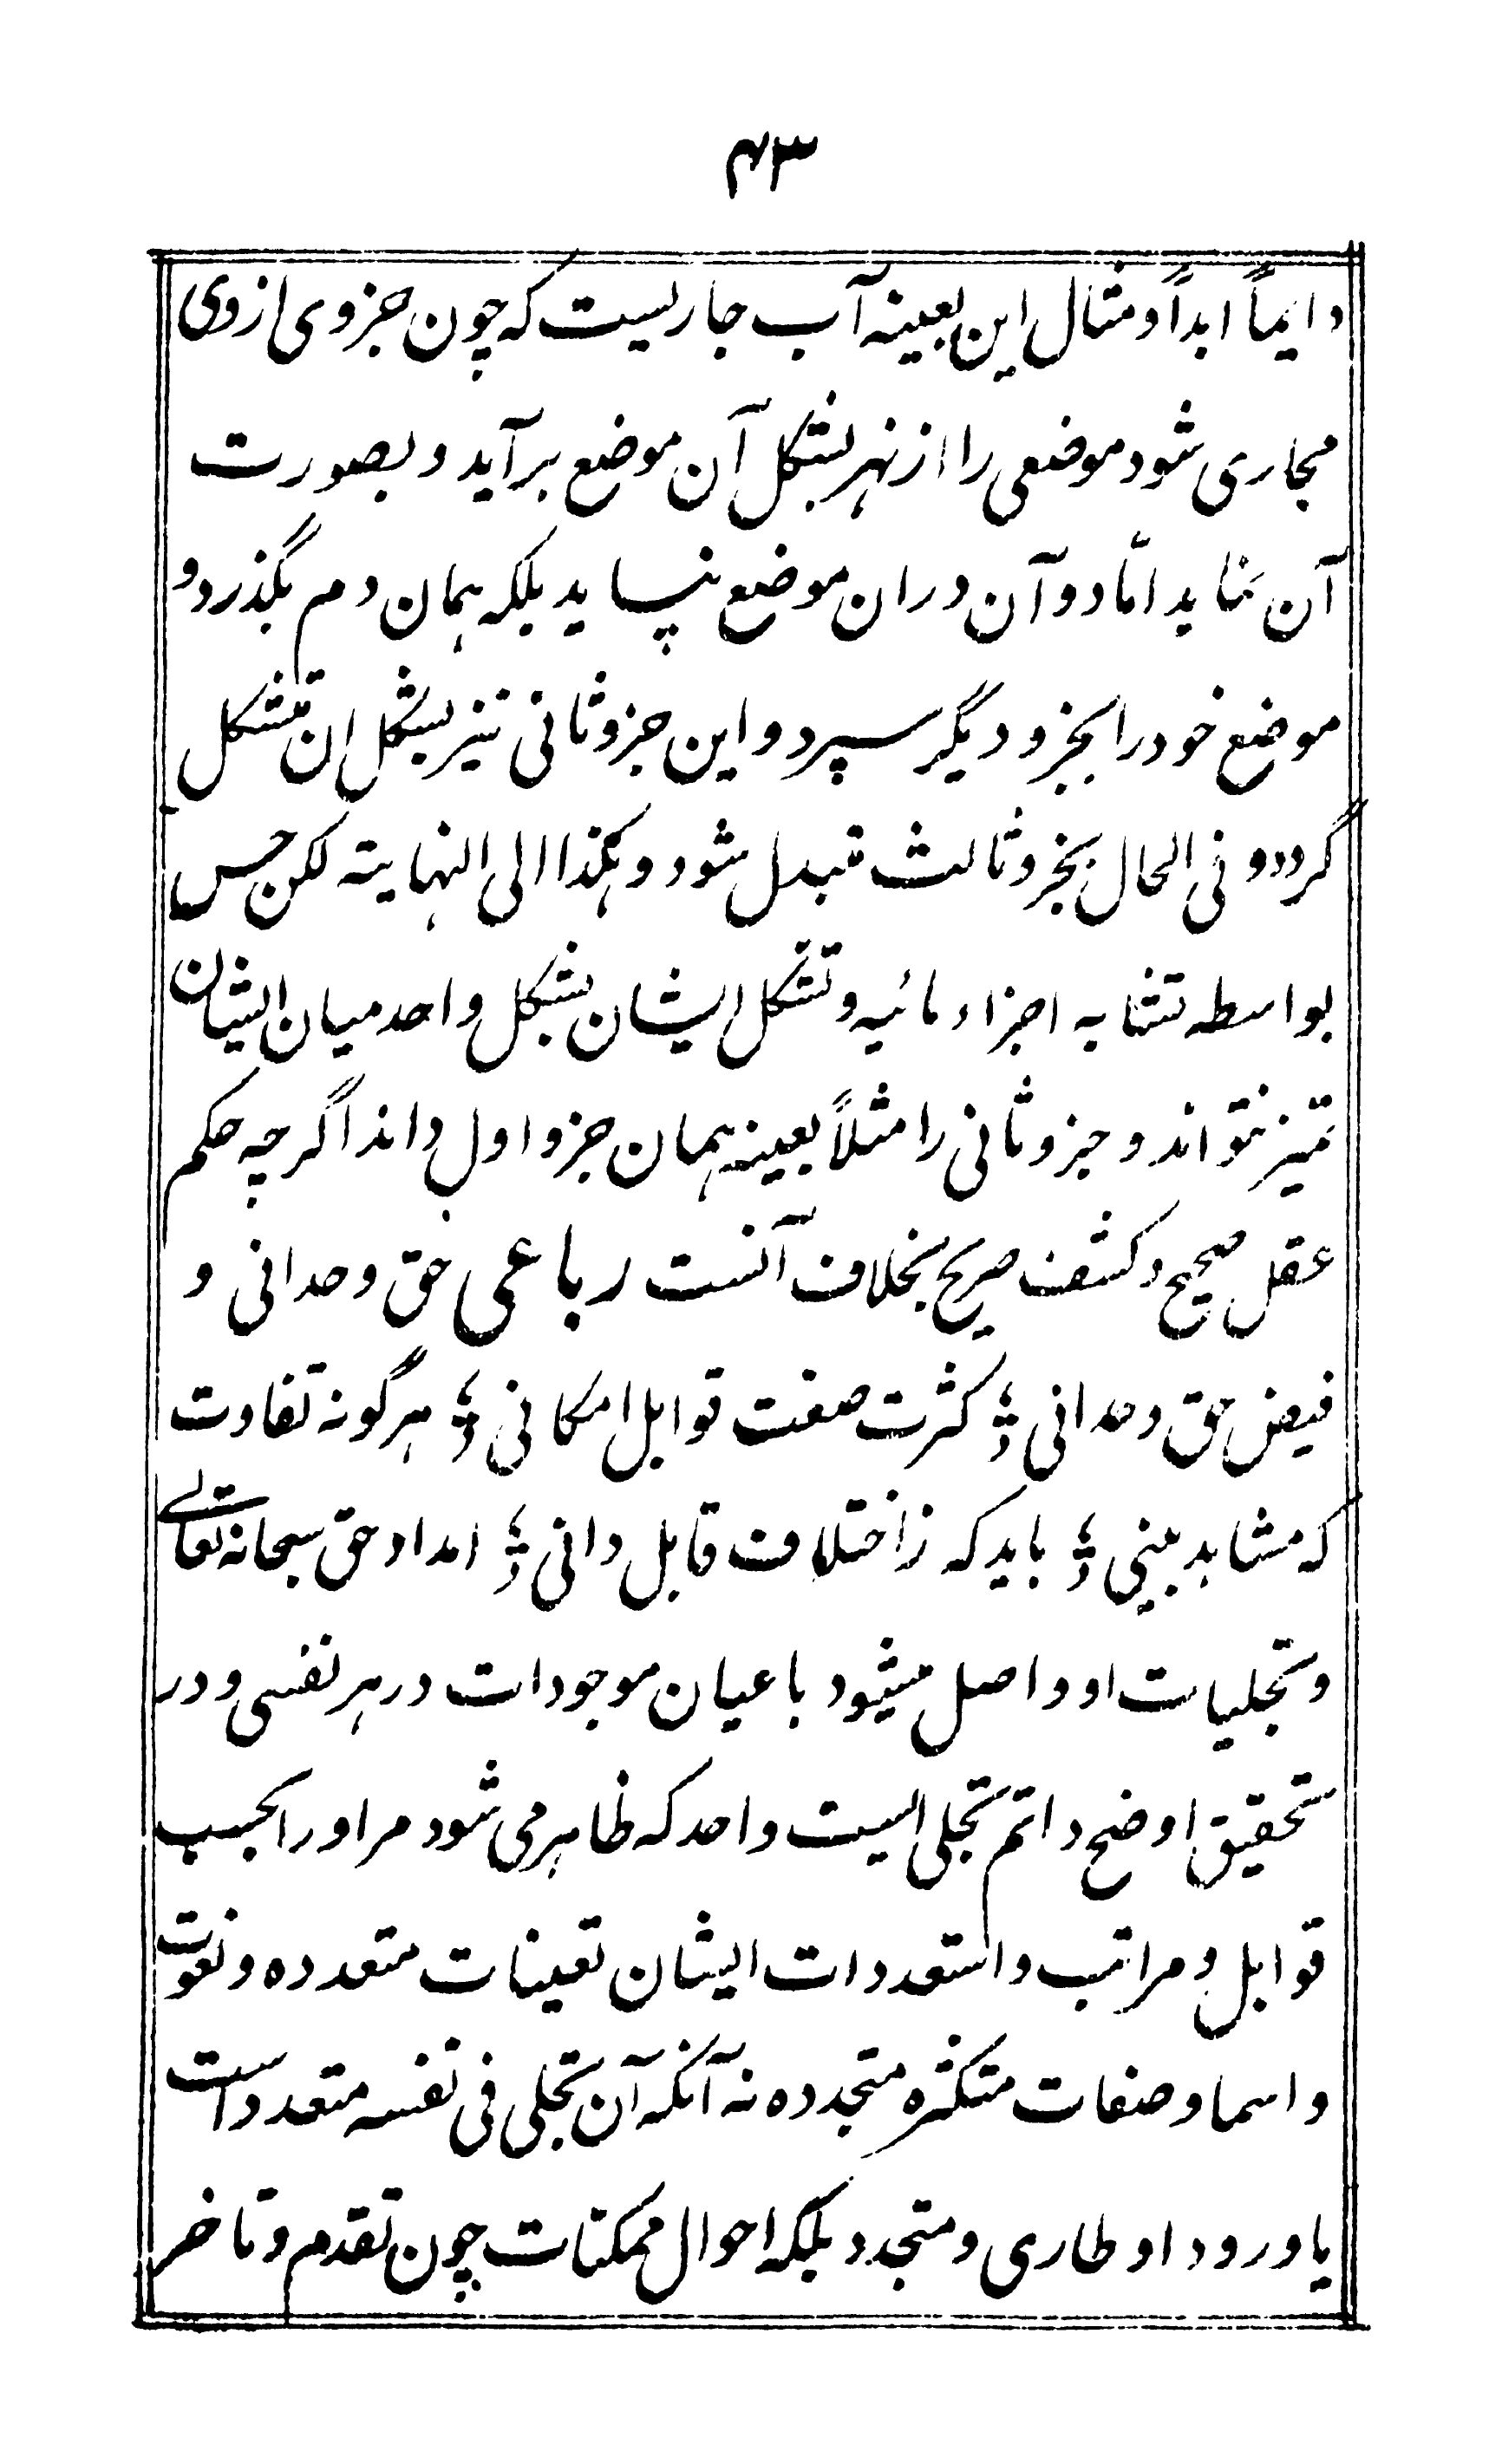 ۴۳
دایماً ابداً و مثال این بعینه آب جاریست که چون جزوی از وی
مجاری شود موضعی را از نهر بشکل آن موضع برآید و بصورت
آن نماید امّا دو آن دران موضع نپساید بلکه همان دم بگذرد و
موضع خود را بجزو دیگر سپرد و این جزو ثانی نیز بشکل ان متشکل
گردد و فی الحال بجزو ثالث متبدل شود و هکذا الی النهایته لکن حس
بواسطه تشابه اجزاء مائیه و تشکل ایشان بشکل واحد میان ایشان
تمیز نتواند و جزو ثانی را مثلاً بعینه همان جزو اول داند اگر چه حکم
عقل صحیح و کشف صریح بخلاف آنست رباعی حق وحدانی و
فیض حق وحدانی ؛ کثرت صفت قوابل امکانی ؛ هر گونه تفاوت
که مشاهد بینی ؛ باید که ز اختلاف قابل دانی ؛ امداد حق سبحانه تعالے
و تجلیات او واصل میشود باعیان موجودات در هر نفسی و در
تحقیق اوضح و اتم تجلی الیست واحد که ظاهر می شود مر او را بحسب
قوابل و مراتب و استعددات ایشان تعینات متعدده و نعوت
و اسما و صفات متکثره متجدده نه آنکه آن تجلی فی نفسه متعدد است
یا ورود او طاری و متجدد بلکه احوال ممکنات چون تقدم و تاخر